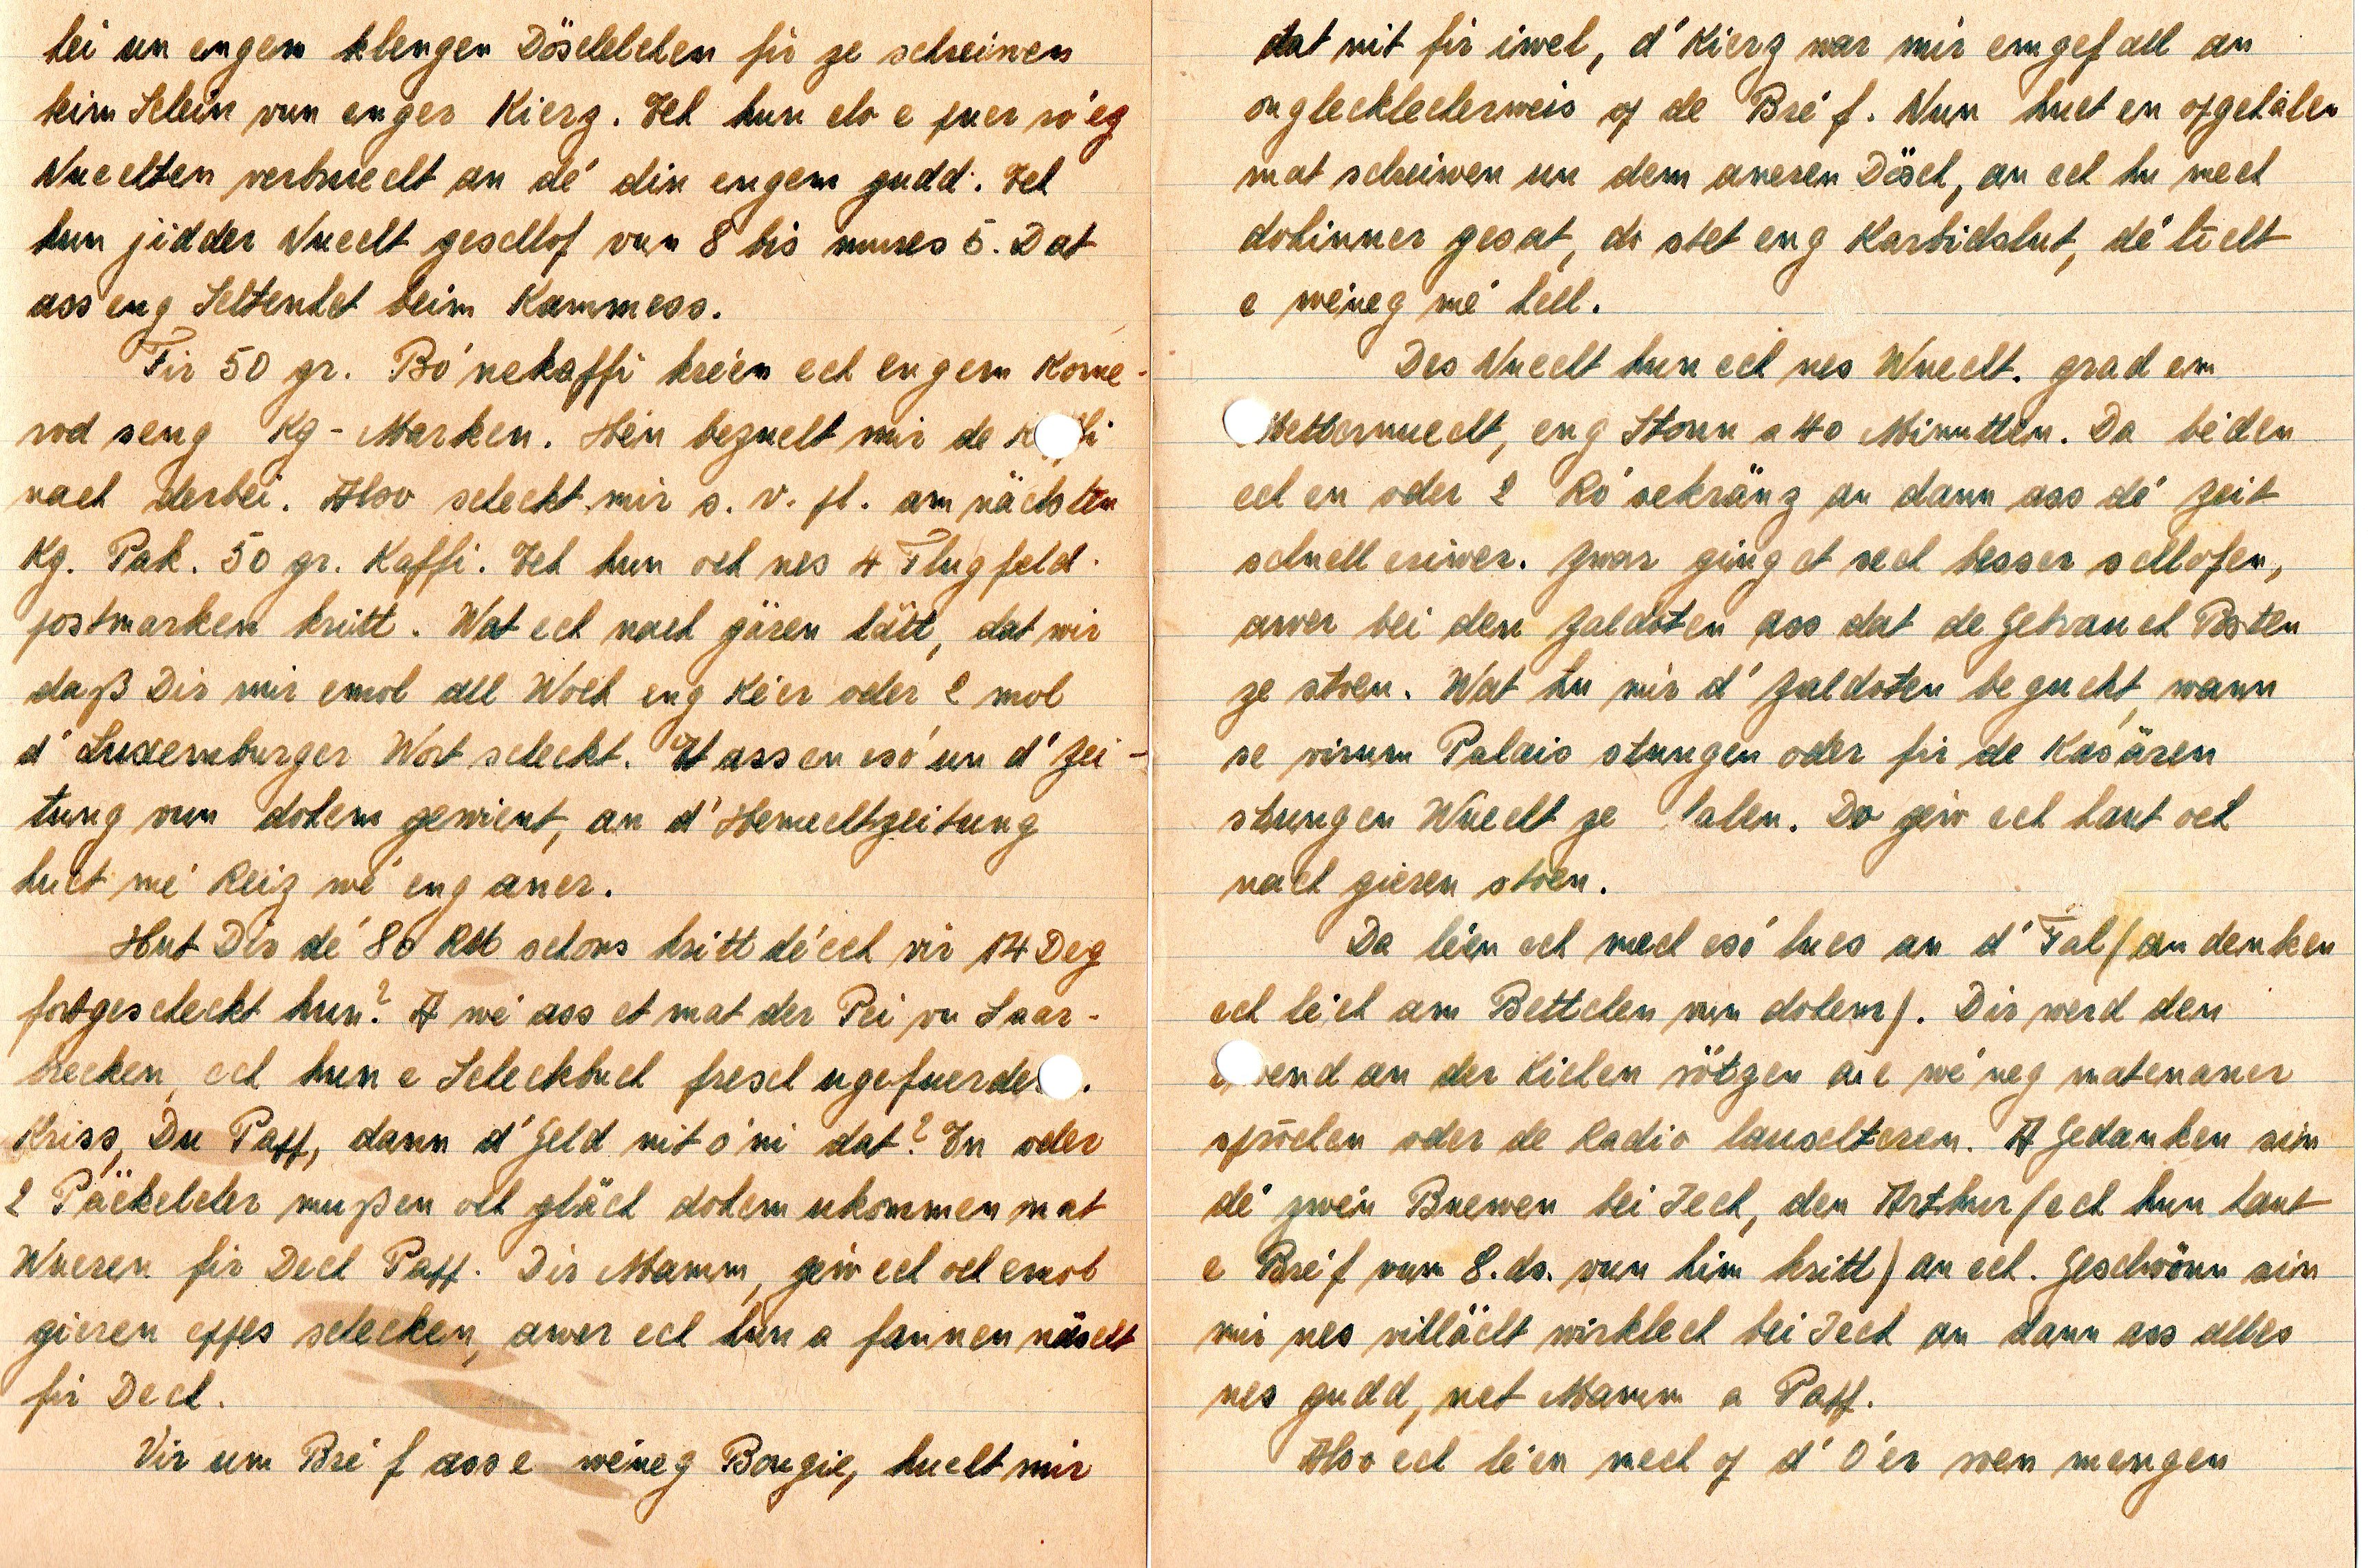 hei un engem klengen Döschelchen fir ze schreiwen
beim Schein vun enger Kierz. Ech hun elo e puer ró'eg
Nuechten verbruecht an dé din engem gudd. Ech
hun jidder Nuecht geschlof vun 8 bis mures 5. Dat
ass eng Seltenhet beim Kammess.
Fir 50 gr. Bó'nekaffi kréien ech engem Kome-
rod seng Kg-Marken. Hien bezuelt mir de K fi
nach derbei. Also scheckt mir s. v. pl. am nächsten
Kg. Pak. 50 gr. Kaffi. Ech hun och nes 4 Flugfeld-
postmarken kritt. Wat ech nach gären hätt, dat wir
daß Dir mir emol all Woch eng Ké'er oder 2 mol
d' Luxemburger Wort scheckt. Et ass en esó un d' Zei-
tung vun dohem gewient, an d' Hemechtzeitung
huet mé Reiz wé eng aner.
Hut Dir dé 80 RM schons kritt dé ech vir 14 Deg
fortgescheckt hun? A wé ass et mat der Pei vu Saar-
brecken, ech hun e Scheckbuch fresch ugefuerder .
Kriss, Du Papp, dann d' Geld nit ó'ni dat? En oder
2 Päckelcher mußen och gläch dohem ukommen mat
Wueren fir Dech Papp. Dir Mamm, géiw ech och emol
gieren eppes schecken, awer ech hun a fannen näischt
fir Dech.
Vir um Bréf ass e wéneg Bougie, huelt mir
dat nit fir iwel, d' Kierz war mir emgefall an
onglecklecherweis op de Bréf. Nun huet en opgehalen
mat schreiwen un dem aneren Dösch, an ech hu mech
dohinner gesat, do stet eng Karbidslut, dé liecht
e wéneg mé hell.
Des Nuecht hun ech nes Wuecht. grad em
Metternuecht, eng Stonn a 40 Minutten. Da béden
ech en oder 2 Ró'sekränz an dann ass dé Zeit
schnell eriwer. Zwar ging et sech besser schlofen,
awer bei den Zaldoten ass dat de Gebrauch Posten
ze stoen. Wat hu mir d' Zaldoten beguckt, wann
se virum Palais stungen oder fir de Kasären
stungen Wuecht ze halen. Do géiw ech haut och
nach gieren stoen.
Da léen ech mech esó lues an d' Fal (an denken
ech léich am Bettchen vun dohem). Dir werd den
 wend an der Kichen sötzen a e wé'neg matenaner
spröchen oder de Radio lauschteren. A Gedanken sin
dé zwéin Buewen bei Iech, den Arthur (ech hun haut
e Bréf vum 8. ds. vun him kritt) an ech. Geschwönn sin
mir nes villächt wirklech bei Iech an dann ass alles
nes gudd, net Mamm a Papp.
Also ech léen mech op d' O'er wen mengen